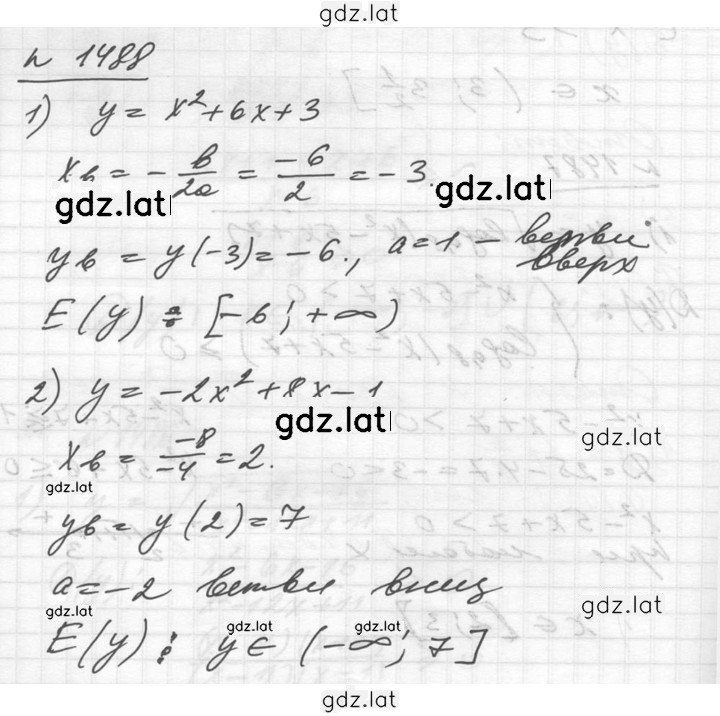 gdz.lat
n 1488
1) y = x² + 6x + 3
xв = - в/2a = -6/2 = -3.
gdz.lat
yв = y(-3) = -6., a = 1 - ветви вверх
E(y) = [-6; +∞)
2) y = -2x² + 8x - 1
gdz.lat
xв = -8/-4 = 2.
gdz.lat
gdz.lat
yв = y(2) = 7
a = -2 ветви вниз
gdz.lat
gdz.lat
gdz.lat
gdz.lat
E(y): y ∈ (-∞; 7]
gdz.lat